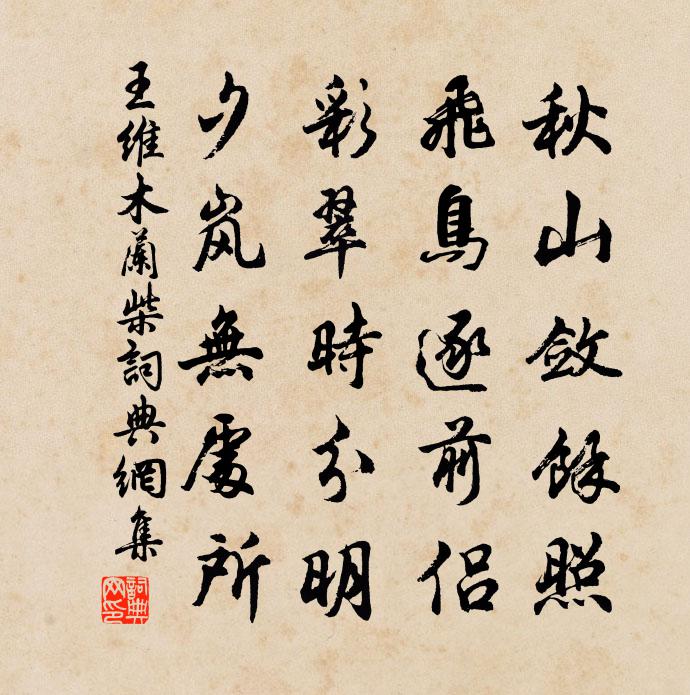 秋山斂餘照
飛鳥逐前侶
彩翠時分明
夕岚無處所
王維木蘭柴詞典網集
詞典網印